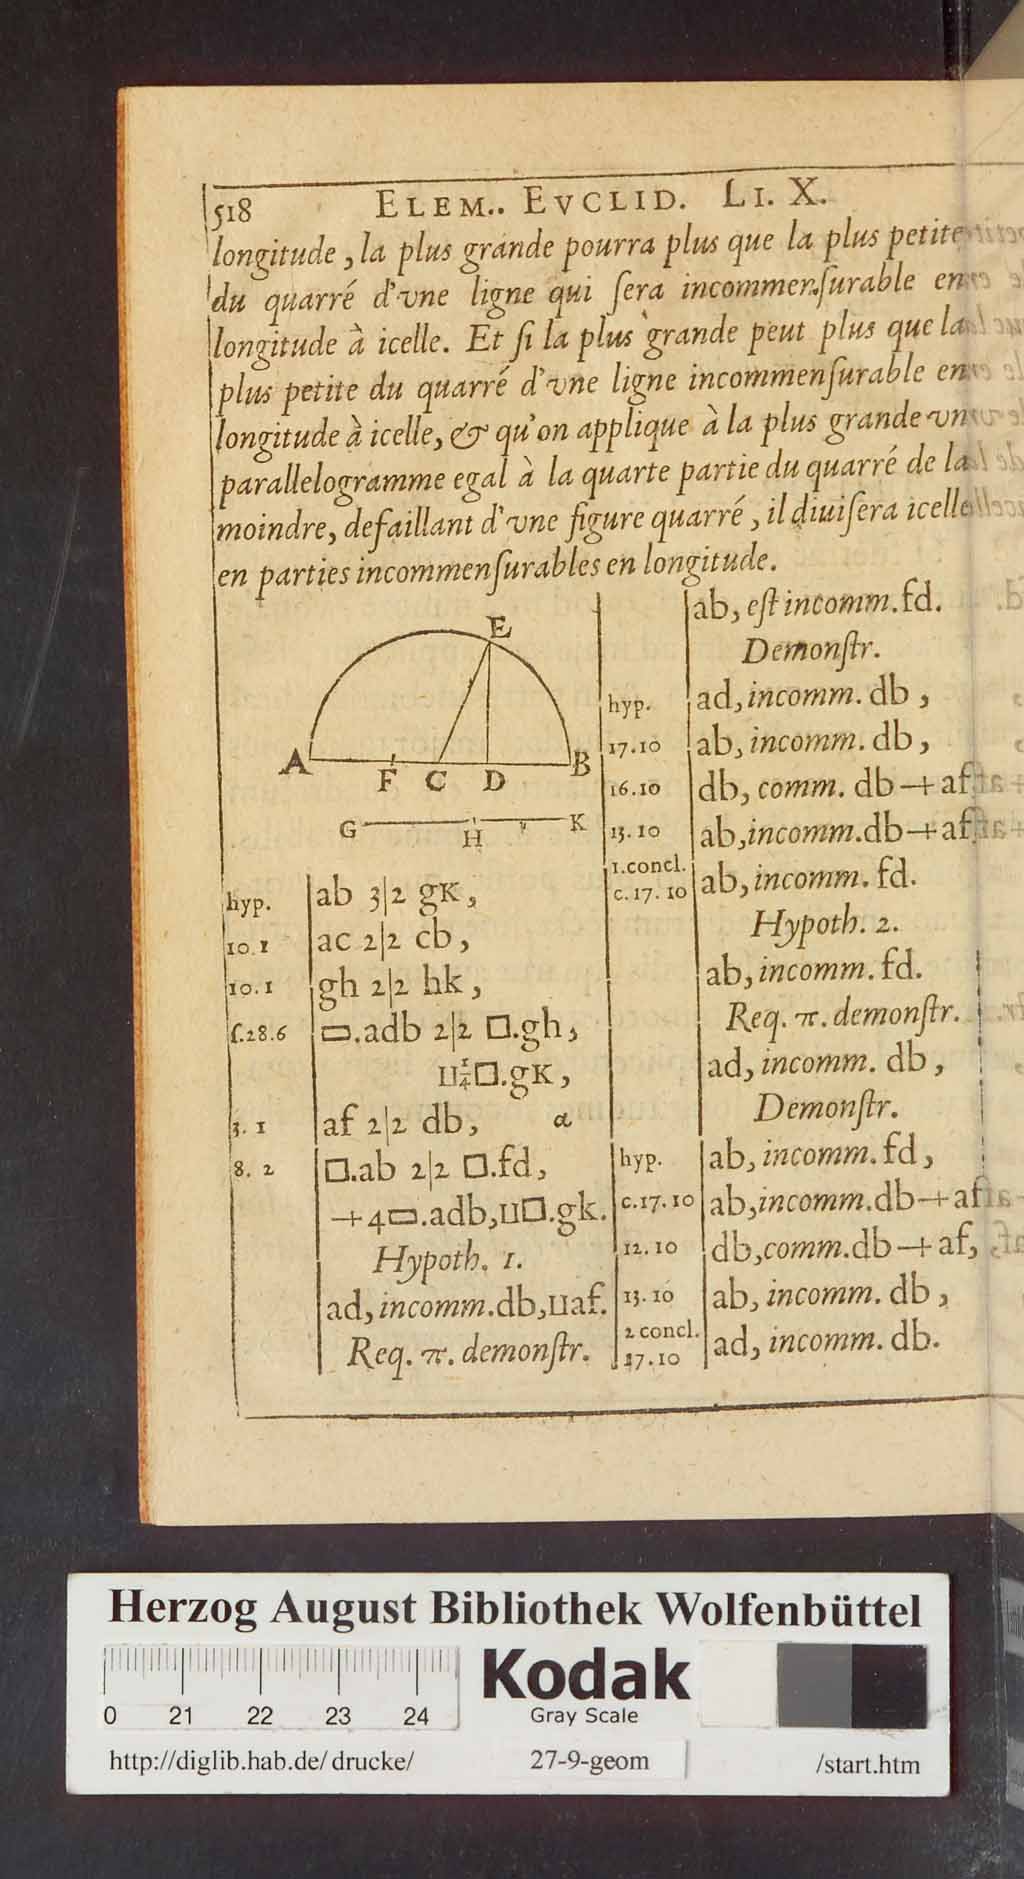 518 ELEM.. EVCLID. LI. X.
longitude, la plus grande pourra plus que la plus petite
du quarré d'vne ligne qui ſera incommenſurable en
longitude à icelle. Et ſi la plus grande peut plus que la
plus petite du quarré d'vne ligne incommenſurable en
longitude à icelle, & qu'on applique à la plus grande vn
parallelogramme egal à la quarte partie du quarré de la
moindre, defaillant d'vne figure quarré, il diuiſera icelle
en parties incommenſurables en longitude.
E
A F C D B
G H K
hyp. ab 3|2 gK,
10.1 ac 2|2 cb,
10.1 gh 2|2 hk,
ſ.28.6 ▭.adb 2|2 □.gh,
⊔¼□.gK,
3.1 af 2|2 db, α
8.2 □.ab 2|2 □.fd,
+4▭.adb,⊔□.gk.
Hypoth. 1.
ad, incomm.db,⊔af.
Req. π. demonſtr.
ab, eſt incomm.fd.
Demonſtr.
hyp. ad, incomm. db,
17.10 ab, incomm. db,
16.10 db, comm. db+af
13.10 ab,incomm.db+af
1.concl.
c.17.10 ab, incomm. fd.
Hypoth. 2.
ab, incomm. fd.
Req. π. demonſtr.
ad, incomm. db,
Demonſtr.
hyp. ab, incomm. fd,
c.17.10 ab,incomm.db+af
12.10 db,comm.db+af,
13.10 ab, incomm. db,
2 concl.
17.10 ad, incomm. db.
Herzog August Bibliothek Wolfenbüttel
Kodak
Gray Scale
0 21 22 23 24
http://diglib.hab.de/drucke/ 27-9-geom /start.htm